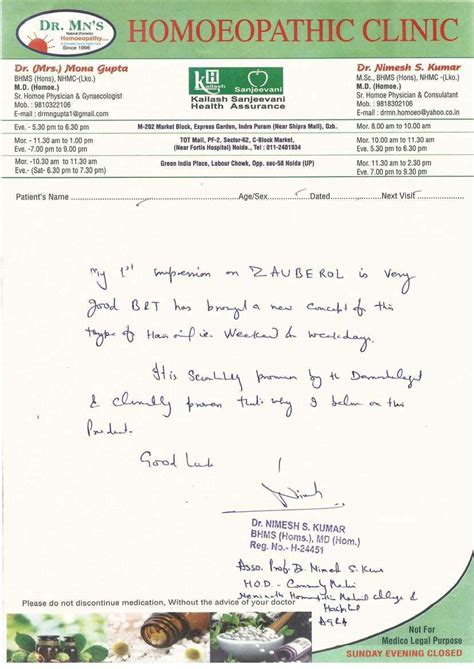 DR. MN'S
Homoeopathy...
Since 1996
HOMOEOPATHIC CLINIC
Dr. (Mrs.) Mona Gupta
BHMS (Hons), NHMC-(Lko.)
M.D. (Homoe.)
Sr. Homoe Physician & Gynaecologist
Mob. : 9810322106
E-mail : drmngupta1@gmail.com
KH
Kailash
Sanjeevani
Kailash Sanjeevani
Health Assurance
Dr. Nimesh S. Kumar
M.Sc., BHMS (Hons), NHMC -(Lko.)
M.D. (Homoe.)
Sr. Homoe Physician & Consultant
Mob. : 9818302106
E-mail : drmn.homoeo@yahoo.co.in
Eve. - 5.30 pm to 6.30 pm
M-202 Market Block, Express Garden, Indra Puram (Near Shipra Mall), Gzb.
Mor. 8.00 am to 10.00 am
Mor. - 11.30 am to 1.00 pm
Eve. -7.00 pm to 9.00 pm
TOT Mall, PF-2, Sector-62, C-Block Market,
(Near Fortis Hospital) Noida., Tel : 011-2401934
Mor. 10.00 am to 11.30 am
Eve. 5.30 pm to 6.30 pm
Mor. -10.30 am to 11.30 am
Eve.- (Sat- 6.30 pm to 7.30 pm)
Green India Place, Labour Chowk, Opp. sec-58 Noida (UP)
Mor. 11.30 am to 2.30 pm
Eve. 7.00 pm to 9.30 pm
Patient's Name Age/Sex Dated Next Visit
My 1st impression on ZAUBEROL is very
good BRT has brought a new concept for this
type of Hair oil i.e. Weekend & weekdays.
It is by Dermatologist
& clinically proven that's why I believe on this
Product.
Good Luck
Dr. NIMESH S. KUMAR
BHMS (Homs.), MD (Hom.)
Reg. No.- H-24451
Asso. Prof. Dr. Nimesh S. Kumar
H.O.D. - Community Medi
Homoeopathic Medical College &
Hospital
AGRA
Please do not discontinue medication, Without the advice of your doctor
Not For
Medico Legal Purpose
SUNDAY EVENING CLOSED